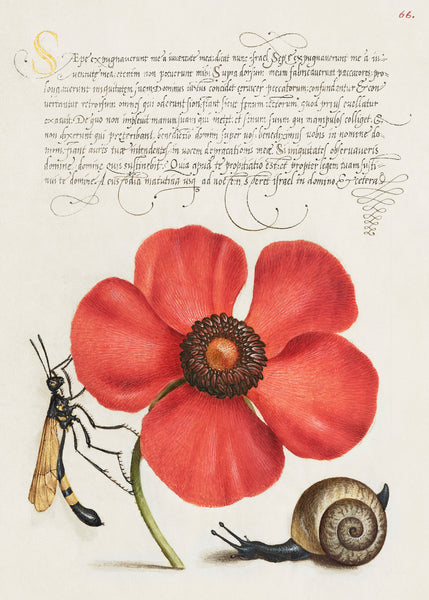 66.
Sæpe expugnauerunt me a iuuentute mea, dicat nunc Israel. Sepe expugnauerunt me a iu
uentute mea, etenim non potuerunt mihi. Supra dorsum meum fabricauerunt peccatores: pro
longauerunt iniquitatem suam. Dominus iustus concidet ceruices peccatorum: confundantur & con
uertantur retrorsum omnes qui oderunt Sion. fiant sicut fenum tectorum quod prius euellatur
exaruit. De quo non impleuit manum suam qui metet, et sinum suum qui manipulos colliget. &
non dixerunt qui preteribant, benedictio domini super vos: benediximus vobis in nomine do
mini. fiant aures tuæ intendentes, in vocem deprecationis meæ. Si iniquitates obseruaueris
domine, domine quis sustinebit. Quia apud te propitiatio est: et propter legem tuam susti
nui te domine. A custodia matutina usq, ad noctem speret Israel in domino. & cetera